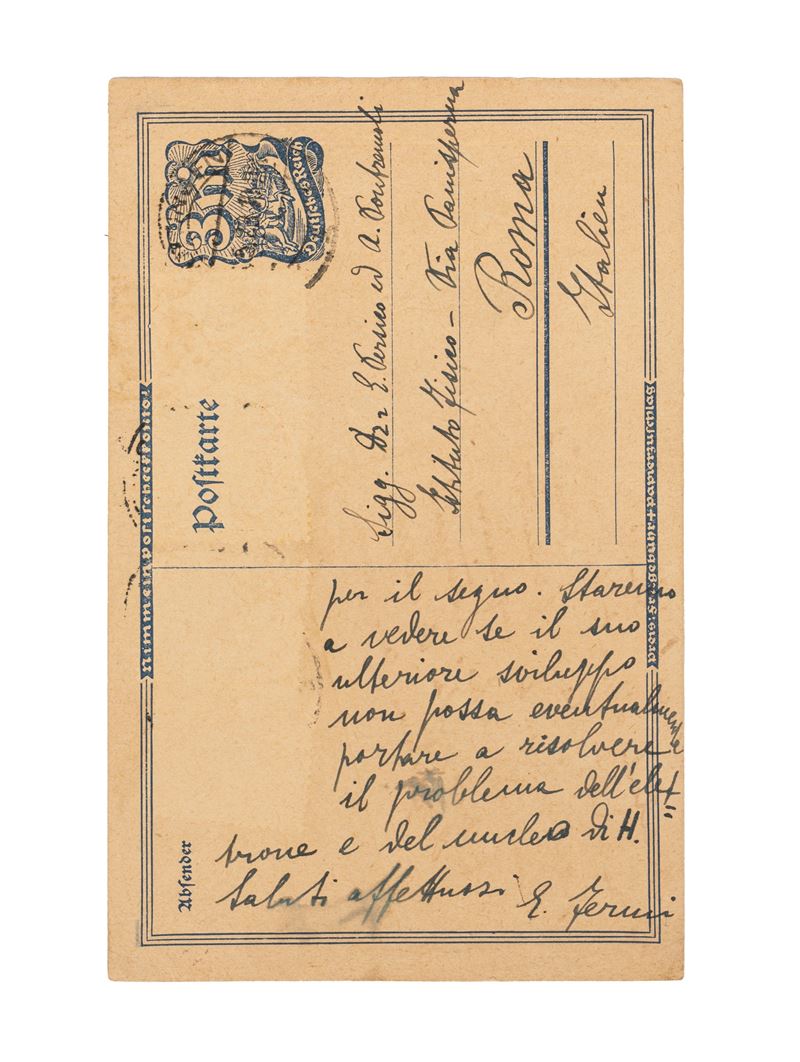 3 M
Deutsches Reich
Postkarte
Nimm ein Postscheckkonto!
Preis: Freigebühr + Papierzuschlag
Sigg. Dri E. Persico ed A. Pontremoli
Istituto Fisico – Via Panisperna
Roma
Italien
Absender
per il segno. Staremo
a vedere se il suo
ulteriore sviluppo
non possa eventualmente
portare a risolvere
il problema dell'elet
trone e del nucleo di H.
Saluti affettuosi
E. Fermi